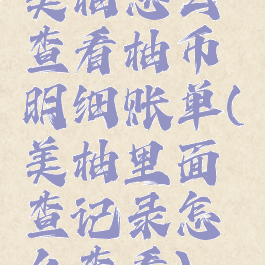 美柚怎么
查看柚币
明细账单(
美柚里面
查记录怎
么查看)